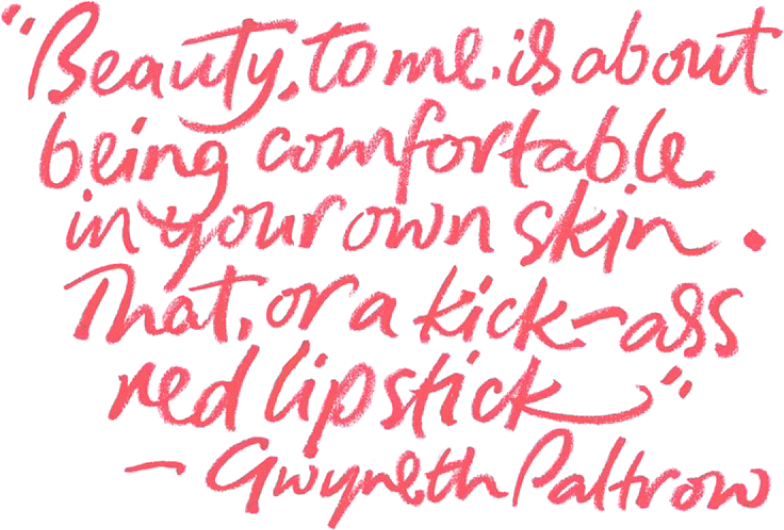 "Beauty, to me, is about
being comfortable
in your own skin.
That, or a kick-ass
red lipstick"
- Gwyneth Paltrow